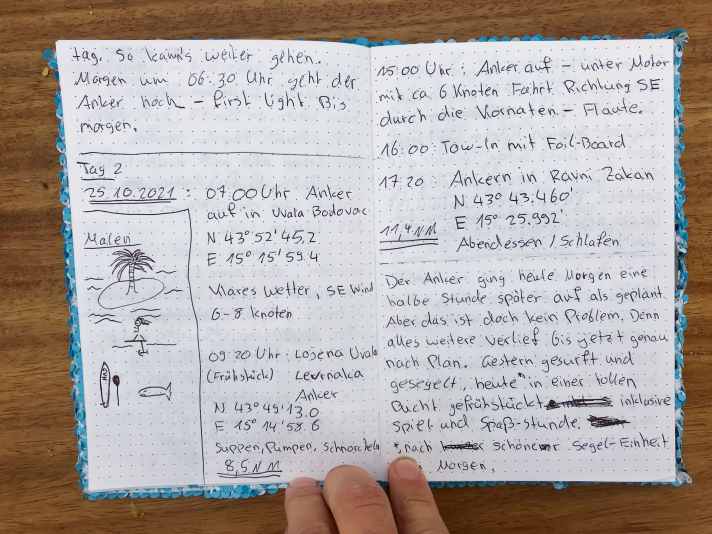 tag. So kann's weiter gehen.
Morgen um 06:30 Uhr geht der
Anker hoch – first light. Bis
morgen.
Tag 2
25.10.2021 : 07.00 Uhr Anker
auf in Uvala Bodovac
N 43° 52' 45,2
E 15° 15' 59.4
Malen
Klares Wetter, SE Wind
6-8 knoten
09:20 Uhr: Lojena Uvala
(Frühstück) Levrnaka
Anker
N 43° 49' 13.0
E 15° 14' 58.6
Suppen, Pumpen, Schnorcheln
8,5 NM
15:00 Uhr: Anker auf – unter Motor
mit ca 6 Knoten Fahrt Richtung SE
durch die Kornaten – Flaute.
16:00: Tow-In mit Foil-Board
17:20: Ankern in Ravni Zakan
N 43° 43.460'
E 15° 25.992'
11,4 NM
Abendessen / Schlafen
Der Anker ging heute Morgen eine
halbe Stunde später auf als geplant.
Aber das ist doch kein Problem. Denn
alles weitere verlief bis jetzt genau
nach Plan. Gestern gesurft und
gesegelt, heute * in einer tollen
Bucht gefrühstückt inklusive
Spiel und Spaß-Stunde.
*, nach schöner Segel-Einheit
Morgen,